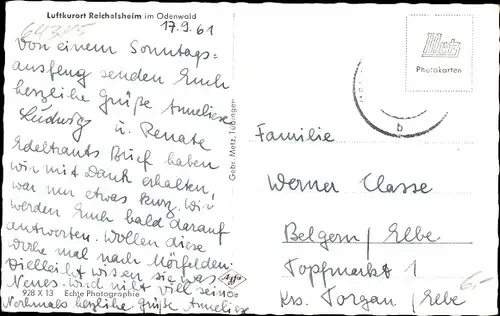 Luftkurort Reichelsheim im Odenwald
64385
17.9.61
Von einem Sonntags-
ausfeug senden Euch
herzliche Grüße Anneliese
Ludwig u. Renate
Edeltrauts Brief haben
wir mit Dank erhalten,
war nur etwas kurz. Wir
werden Euch bald darauf
antworten. Wollen diese
Woche mal nach Mörfelden.
Vielleicht wissen sie was
Neues. Wird nicht viel sein
928 X 13 Echte Photographie
Nochmals herzliche Grüße Anneliese
Gebr. Metz, Tübingen
Agfa
Metz
Photokarten
b
Familie
Werner Classe
Belgern/Elbe
Topfmarkt 1
Krs. Torgau/Elbe
6,-